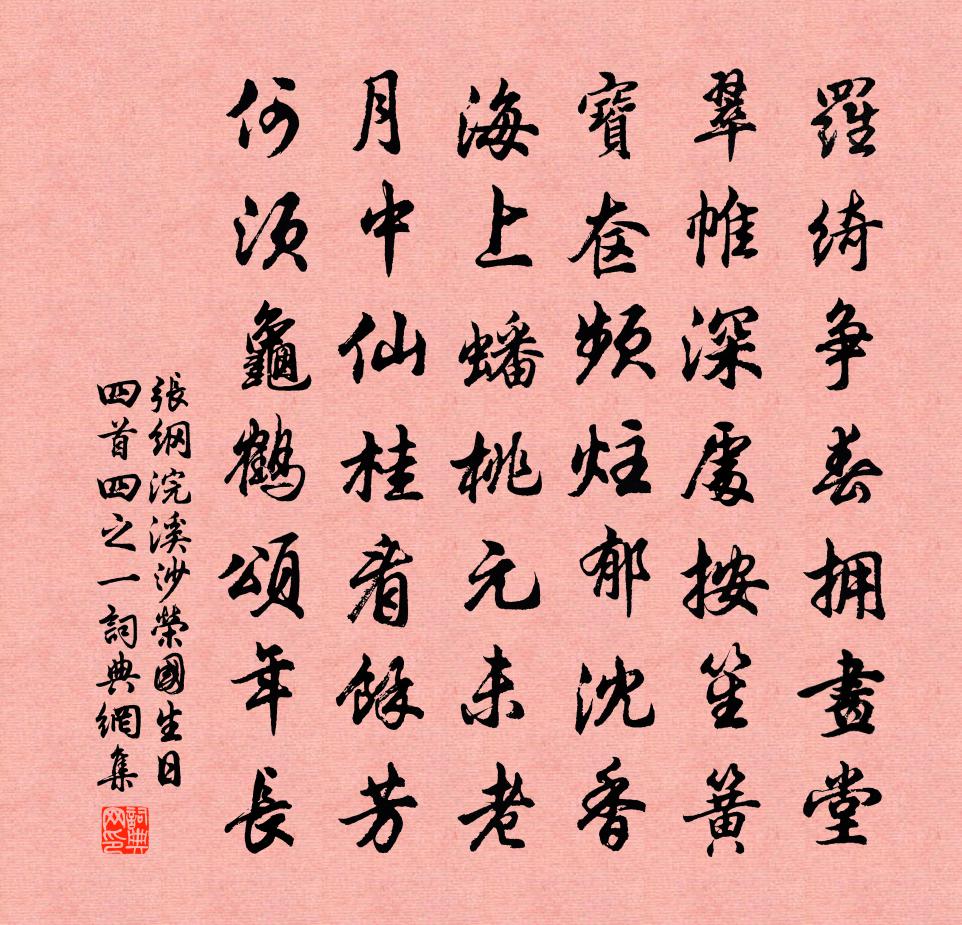 羅綺爭春擁畫堂
翠帷深處按笙簧
寶奩頻炷郁沈香
海上蟠桃元未老
月中仙桂看餘芳
何須龜鶴頌年長
張綱浣溪沙榮國生日
四首四之一詞典網集
詞典网印